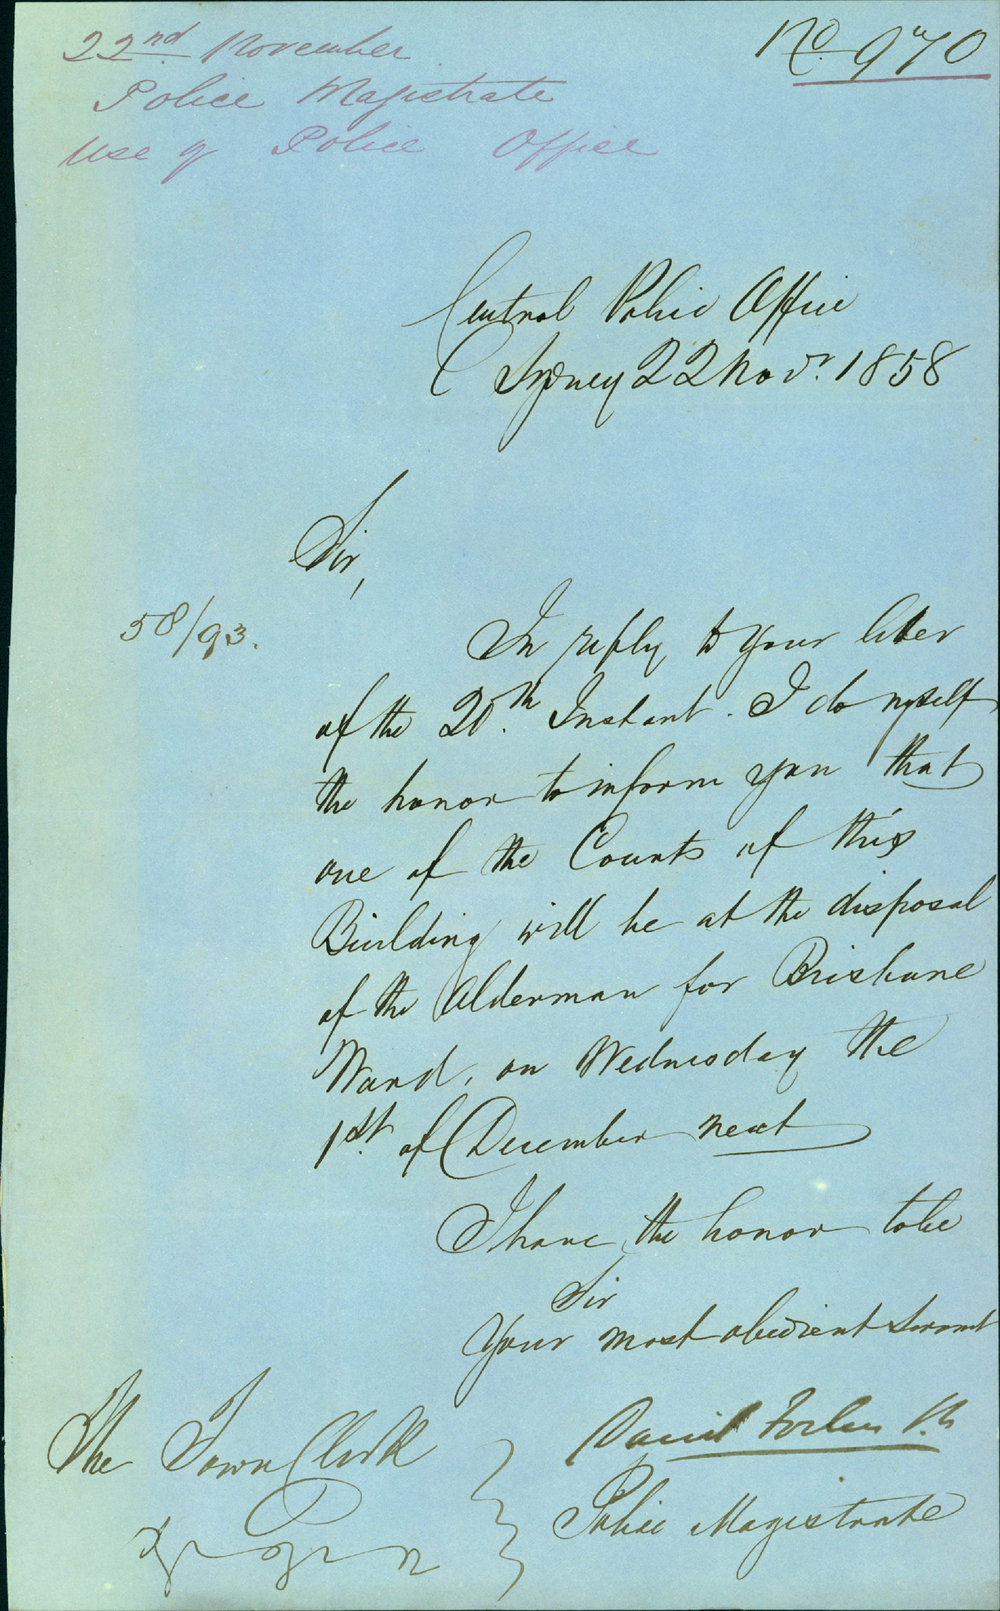 22nd November
Police Magistrate
Use of Police Office
No 970
Central Police Office
Sydney 22 Novr. 1858
Sir,
58/93.
In reply to your letter
of the 20th. Instant. I do myself
the honor to inform you that
one of the Courts of this
Building will be at the disposal
of the Alderman for Brisbane
Ward, on Wednesday the
1st. of December next
I have the honor to be
Sir
Your most obedient Servant
David Forbes
Police Magistrate
The Town Clerk